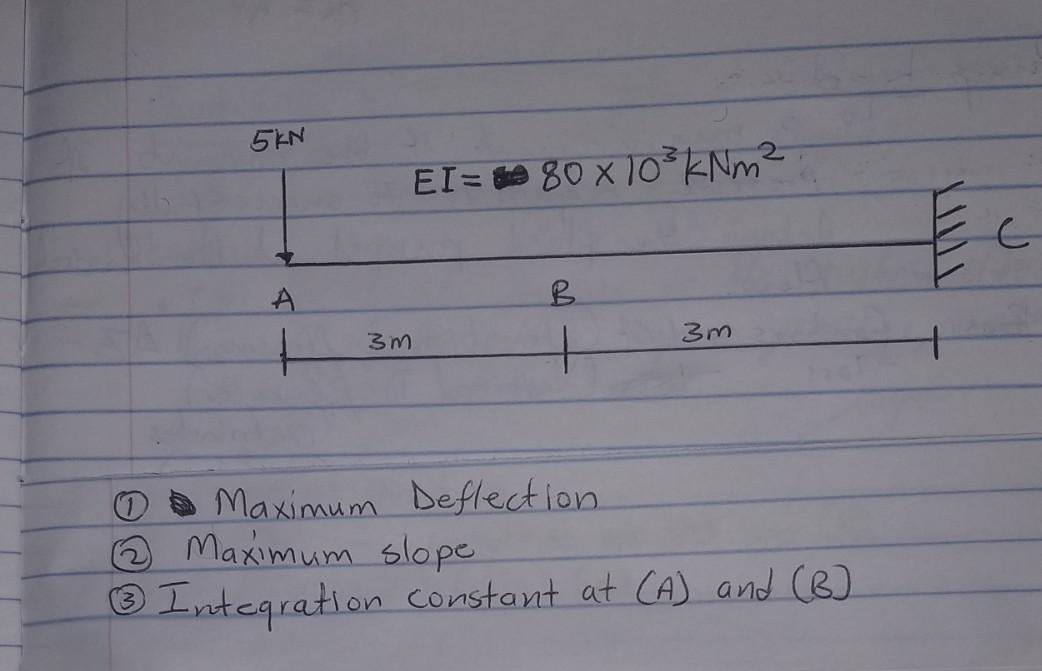 5kN
EI= 80 x 10³ kNm²
C
A
B
3m
3m
① Maximum Deflection
② Maximum slope
③ Integration constant at (A) and (B)